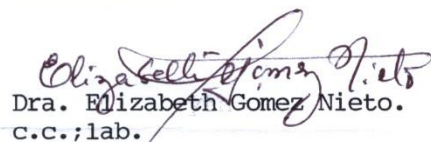 Elizabeth Gomez Nieto
Dra. Elizabeth Gomez Nieto.
c.c.;lab.